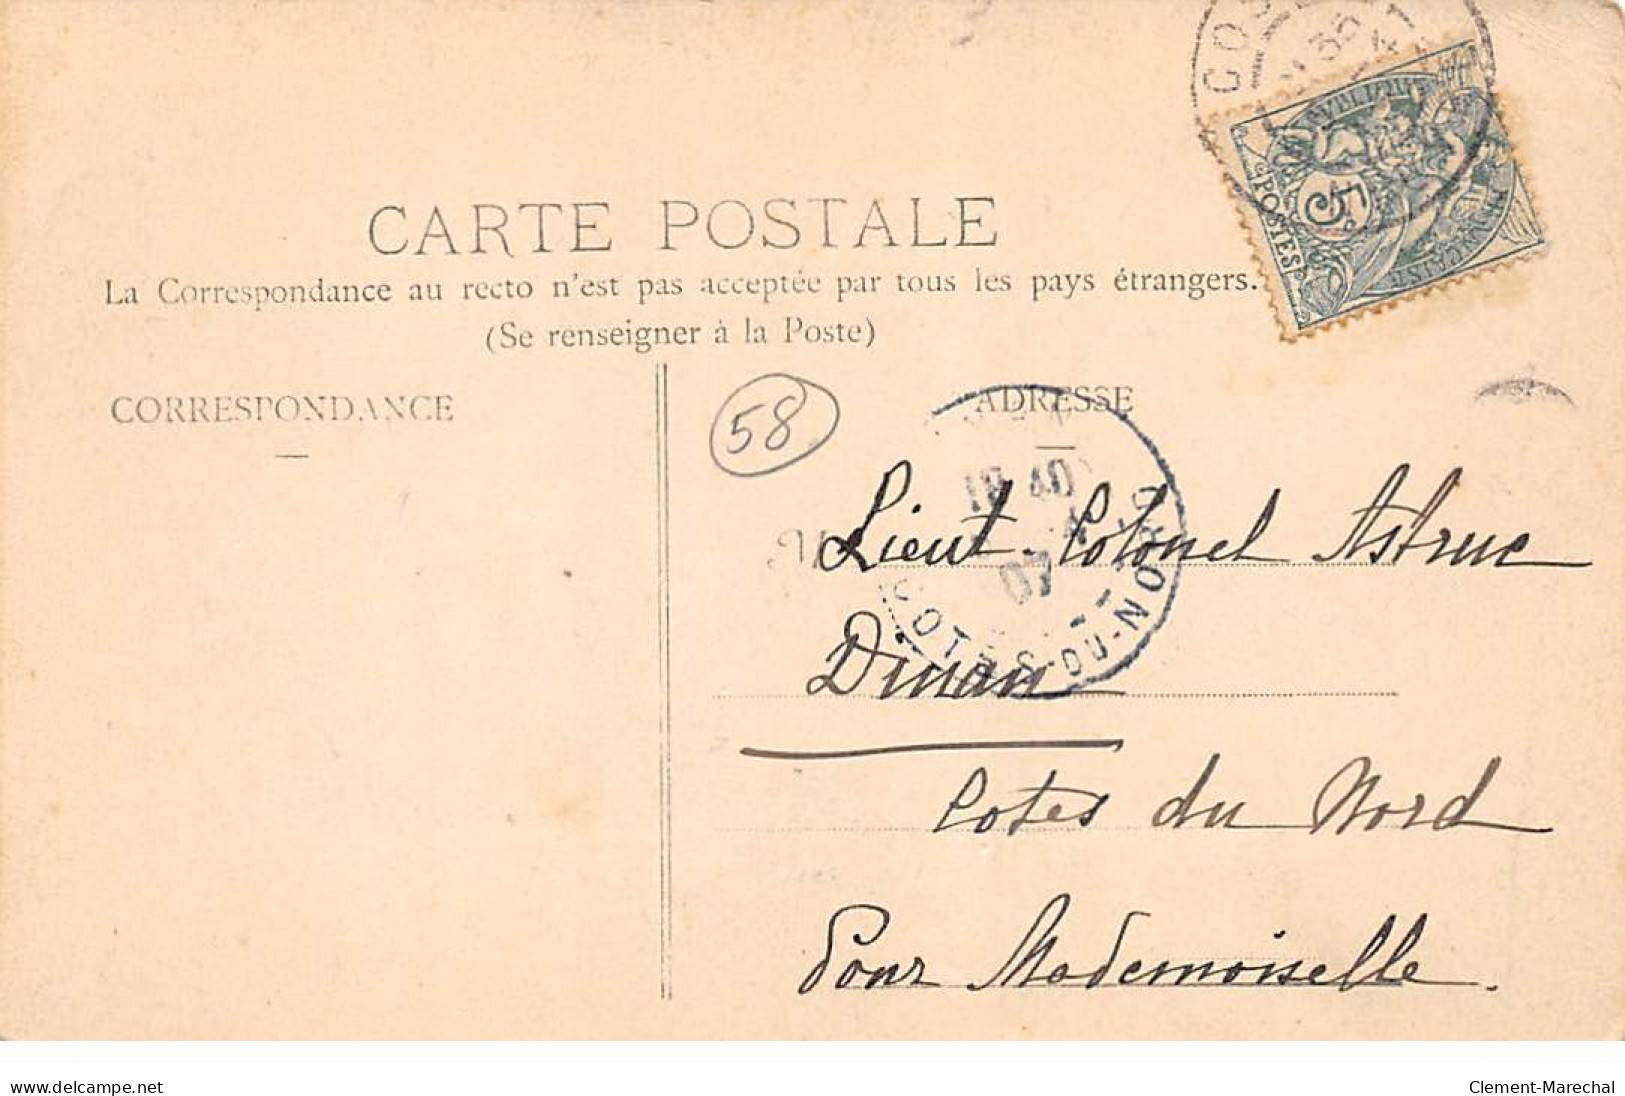 CARTE POSTALE
La Correspondance au recto n'est pas acceptée par tous les pays étrangers.
(Se renseigner à la Poste)
CORRESPONDANCE
58
ADRESSE
Lieut-Colonel Astruc
Dinan
Cotes du Nord
Pour Mademoiselle.
POSTES
5
COTES-DU-NORD
07
www.delcampe.net
Clement-Marechal